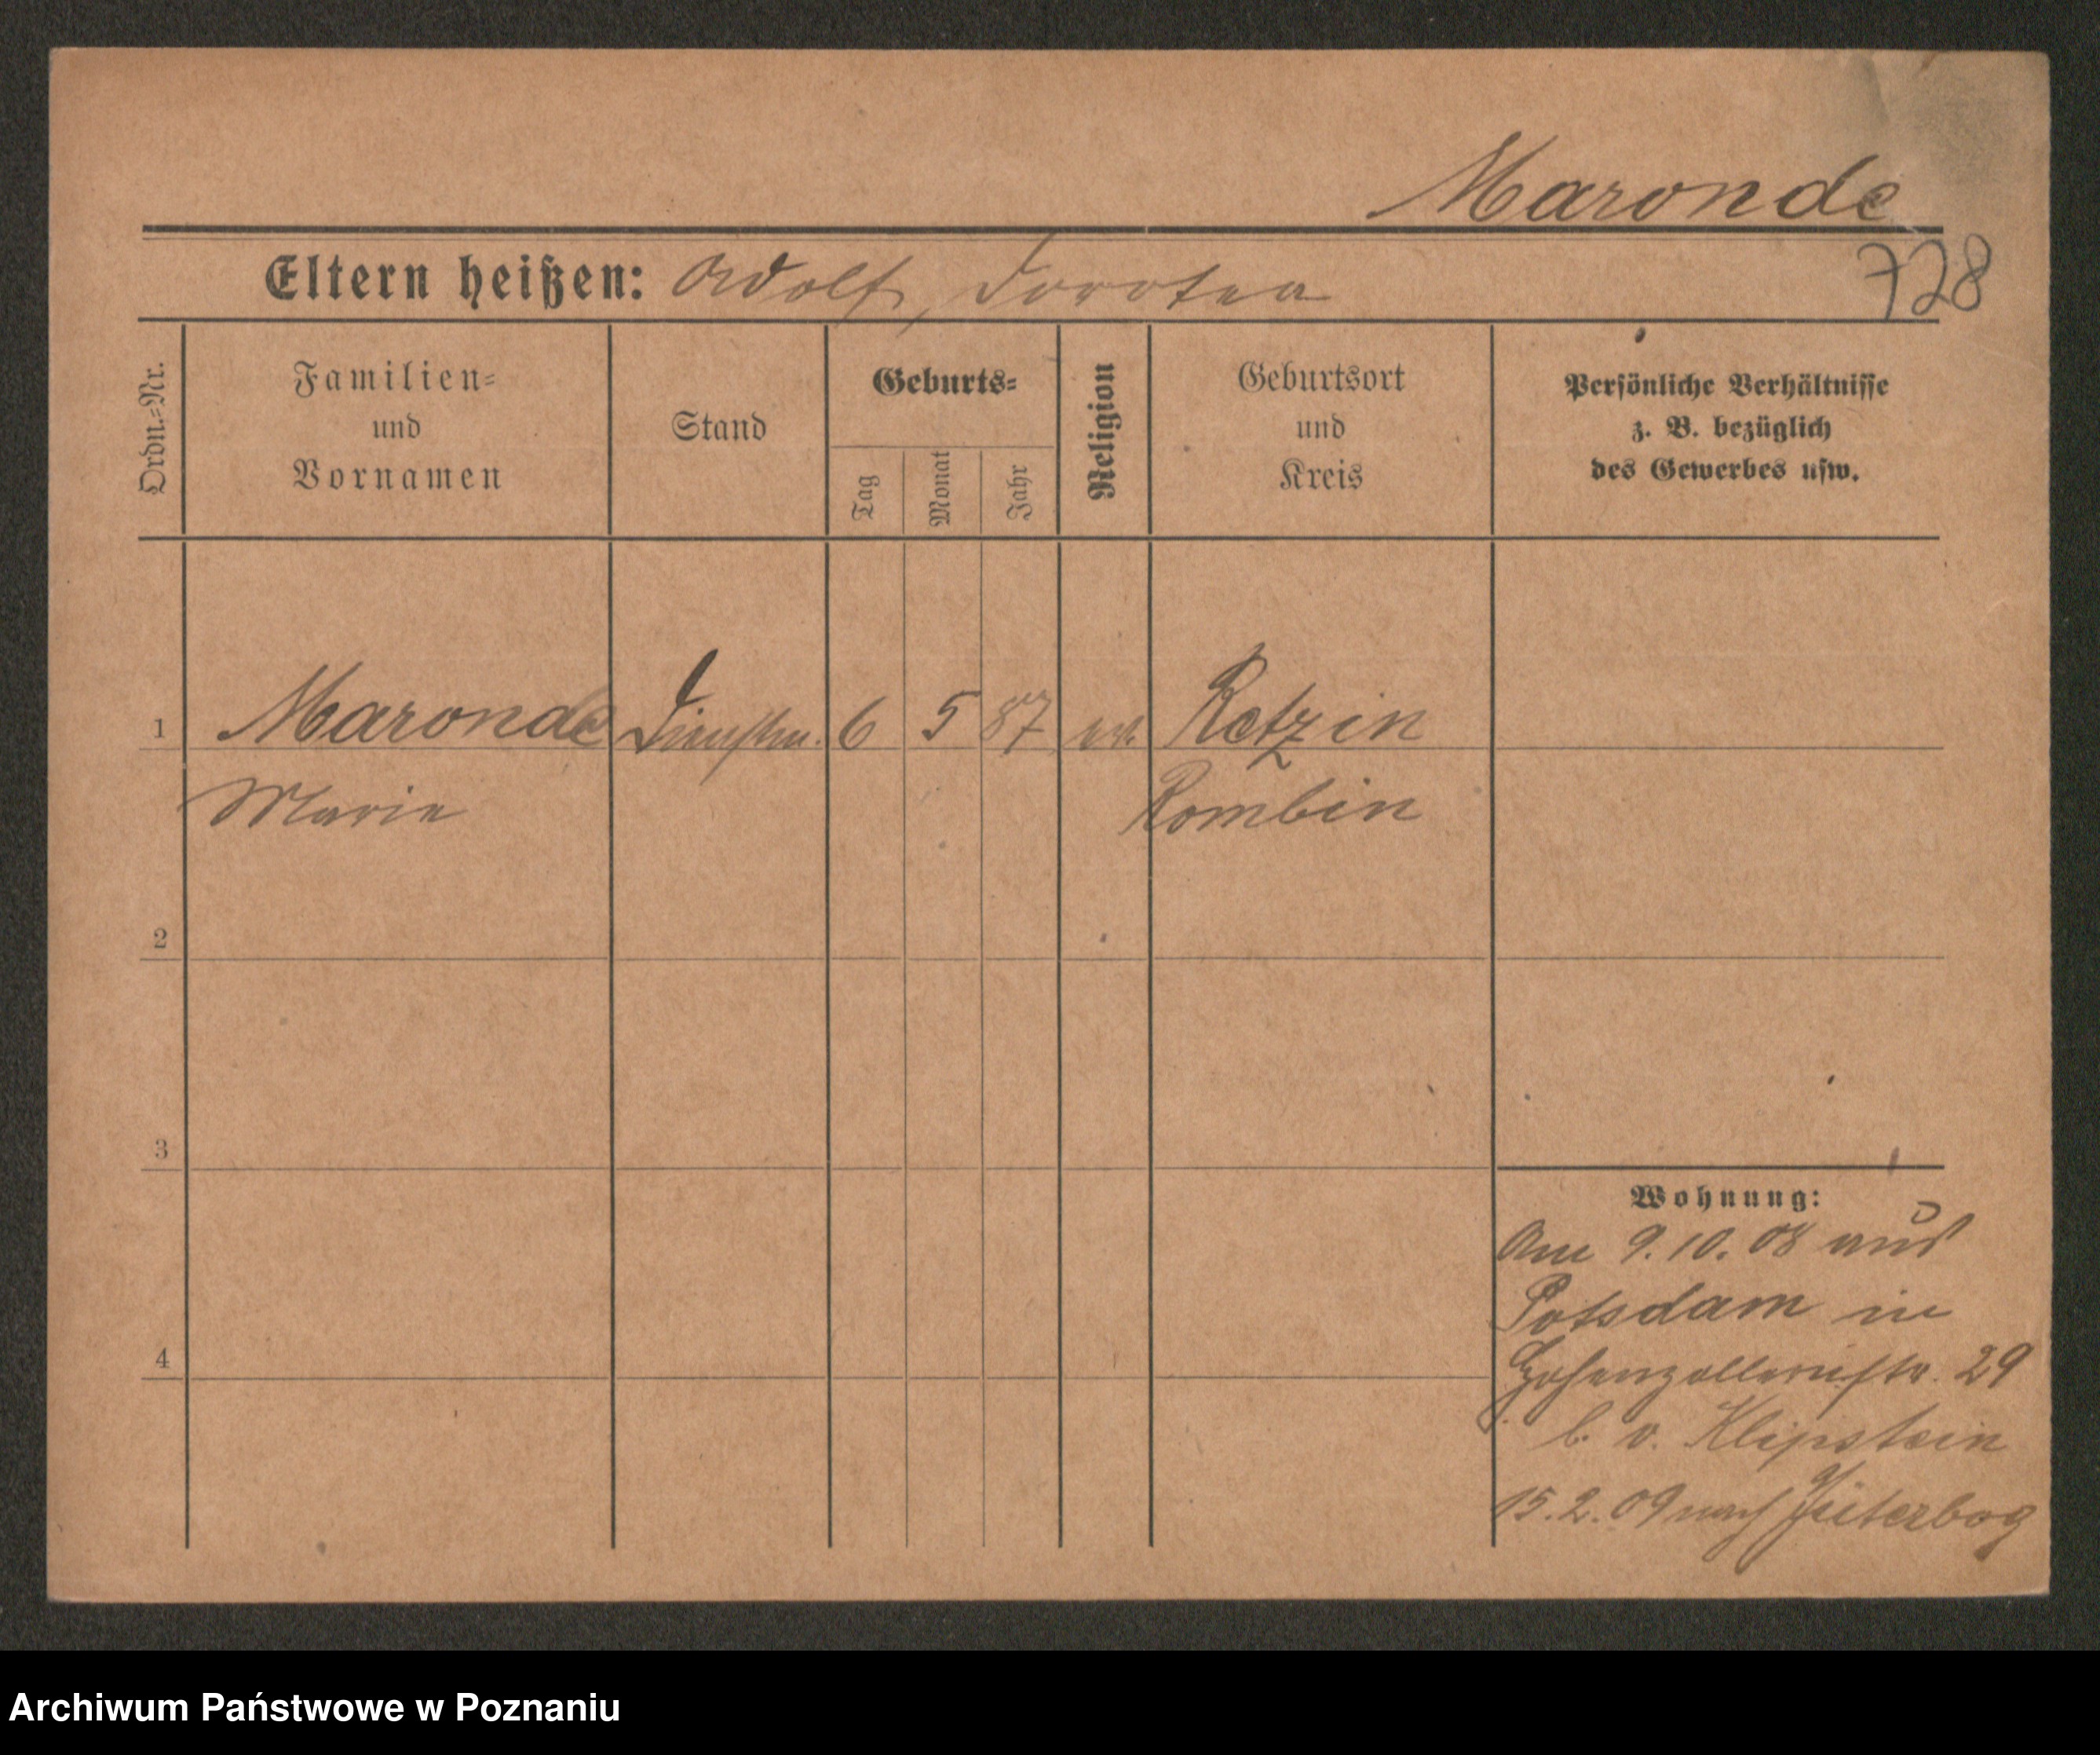 Maronde
728
Eltern heißen: Adolf, Dorotea
Ordn.=Nr.
Familien=
und
Vornamen
Stand
Geburts=
Tag
Monat
Jahr
Religion
Geburtsort
und
Kreis
Persönliche Verhältnisse
z. B. bezüglich
des Gewerbes usw.
1 Maronde Dienstm. 6 5 87 ev. Retzin
Marie Rombin
2
3
4
Wohnung:
Am 9.10.08 aus
Potsdam in
Hohenzollernstr. 29
b. v. Klipstein
15.2.09 nach Jüterbog
Archiwum Państwowe w Poznaniu